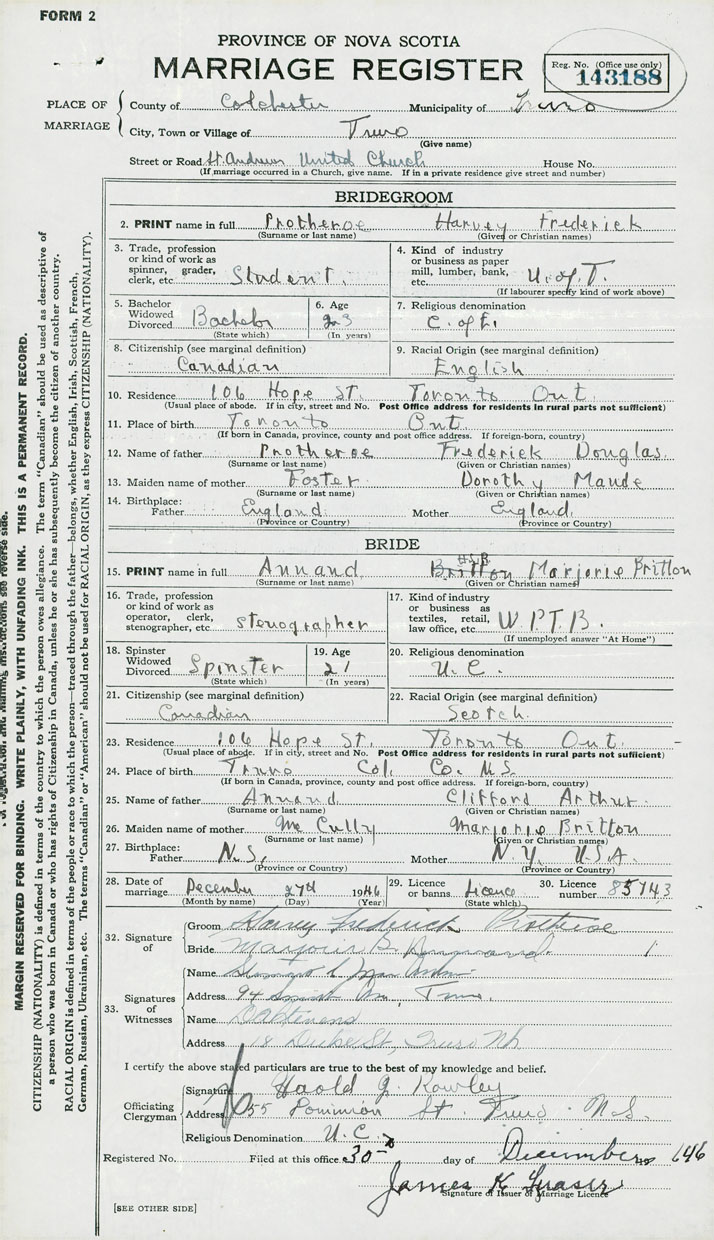 FORM 2
PROVINCE OF NOVA SCOTIA
MARRIAGE REGISTER
Reg. No. (Office use only)
143188
PLACE OF MARRIAGE
County of Colchester Municipality of Truro
City, Town or Village of Truro
(Give name)
Street or Road St. Andrews United Church House No.
(If marriage occurred in a Church, give name. If in a private residence give street and number)
BRIDEGROOM
2. PRINT name in full Protheroe Harvey Frederick
(Surname or last name) (Given or Christian names)
3. Trade, profession or kind of work as spinner, grader, clerk, etc. Student.
4. Kind of industry or business as paper mill, lumber, bank, etc. U. of T.
(If labourer specify kind of work above)
5. Bachelor Widowed Divorced Bachelor
(State which)
6. Age 23
(In years)
7. Religious denomination C. of E.
8. Citizenship (see marginal definition)
Canadian
9. Racial Origin (see marginal definition)
English
10. Residence 106 Hope St. Toronto Ont.
(Usual place of abode. If in city, street and No. Post Office address for residents in rural parts not sufficient)
11. Place of birth Toronto Ont.
(If born in Canada, province, county and post office address. If foreign-born, country)
12. Name of father Protheroe Frederick Douglas.
(Surname or last name) (Given or Christian names)
13. Maiden name of mother Foster Dorothy Maude
(Surname or last name) (Given or Christian names)
14. Birthplace:
Father England Mother England
(Province or Country) (Province or Country)
BRIDE
15. PRINT name in full Annand Britton Marjorie Britton
(Surname or last name) (Given or Christian names)
16. Trade, profession or kind of work as operator, clerk, stenographer, etc. Stenographer
17. Kind of industry or business as textiles, retail, law office, etc. W.P.T.B.
(If unemployed answer "At Home")
18. Spinster Widowed Divorced Spinster
(State which)
19. Age 21
(In years)
20. Religious denomination
U. C.
21. Citizenship (see marginal definition)
Canadian
22. Racial Origin (see marginal definition)
Scotch.
23. Residence 106 Hope St. Toronto Ont.
(Usual place of abode. If in city, street and No. Post Office address for residents in rural parts not sufficient)
24. Place of birth Truro Col. Co. N.S.
(If born in Canada, province, county and post office address. If foreign-born, country)
25. Name of father Annand Clifford Arthur.
(Surname or last name) (Given or Christian names)
26. Maiden name of mother McCully Marjorie Britton
(Surname or last name) (Given or Christian names)
27. Birthplace:
Father N.S. Mother N.Y. U.S.A.
(Province or Country) (Province or Country)
28. Date of marriage December 27th 1946
(Month by name) (Day) (Year)
29. Licence or banns Licence
(State which)
30. Licence number 85743
32. Signature of
Groom Harvey Frederick Protheroe
Bride Marjorie B. Annand.
33. Signatures of Witnesses
Name
Address 94 Truro.
Name
Address 18 Duke St, Truro NS
I certify the above stated particulars are true to the best of my knowledge and belief.
Officiating Clergyman
Signature Harold G. Rowley
Address 55 Dominion St. Truro. N.S.
Religious Denomination U.C.
Registered No. Filed at this office 30 day of December 1946
James K Fraser
Signature of Issuer of Marriage Licence
[SEE OTHER SIDE]
MARGIN RESERVED FOR BINDING. WRITE PLAINLY, WITH UNFADING INK. THIS IS A PERMANENT RECORD.
CITIZENSHIP (NATIONALITY) is defined in terms of the country to which the person owes allegiance. The term "Canadian" should be used as descriptive of
a person who was born in Canada or who has rights of Citizenship in Canada, unless he or she has subsequently become the citizen of another country.
RACIAL ORIGIN is defined in terms of the people or race to which the person—traced through the father—belongs, whether English, Irish, Scottish, French,
German, Russian, Ukrainian, etc. The terms "Canadian" or "American" should not be used for RACIAL ORIGIN, as they express CITIZENSHIP (NATIONALITY).